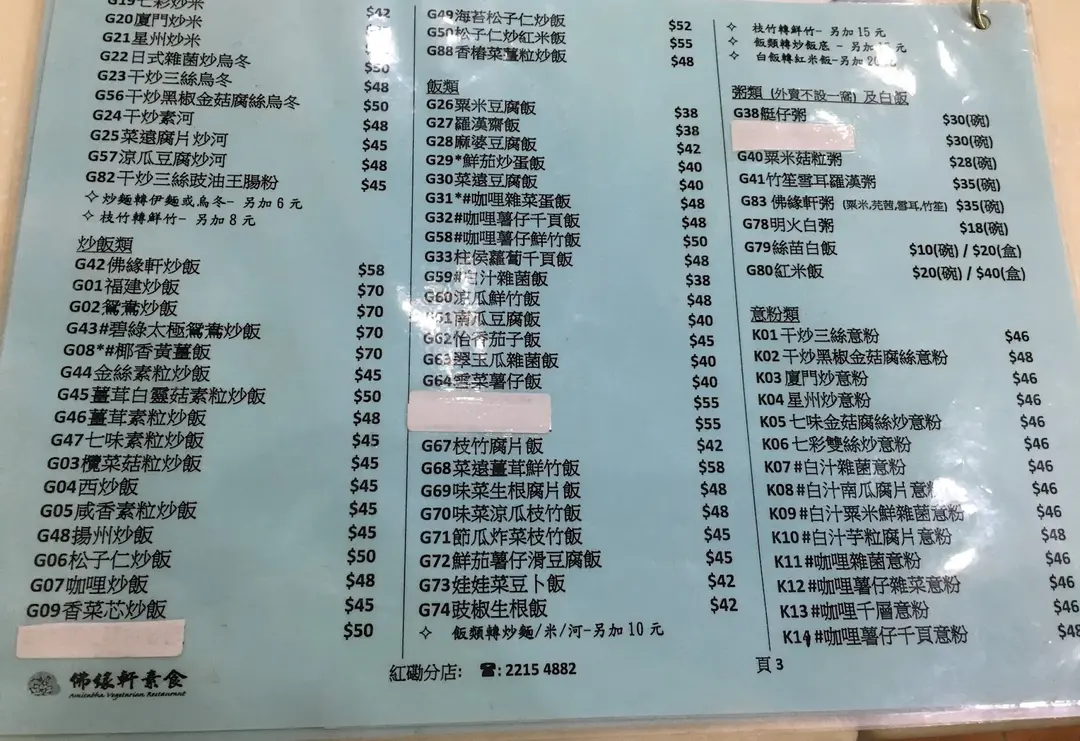 G19七彩炒米 $42
G20廈門炒米
G21星州炒米
G22日式雜菌炒烏冬 $50
G23干炒三絲烏冬 $48
G56干炒黑椒金菇腐絲烏冬 $50
G24干炒素河 $48
G25菜遠腐片炒河 $45
G57涼瓜豆腐炒河 $48
G82干炒三絲豉油王腸粉 $45
✧炒麵轉伊麵或烏冬- 另加 6 元
✧ 枝竹轉鮮竹- 另加 8 元
炒飯類
G42佛緣軒炒飯 $58
G01福建炒飯 $70
G02鴛鴦炒飯 $70
G43#碧綠太極鴛鴦炒飯 $70
G08*#椰香黃薑飯 $70
G44金絲素粒炒飯 $45
G45薑茸白靈菇素粒炒飯 $50
G46薑茸素粒炒飯 $48
G47七味素粒炒飯 $45
G03欖菜菇粒炒飯 $45
G04西炒飯 $45
G05咸香素粒炒飯 $45
G48揚州炒飯 $45
G06松子仁炒飯 $50
G07咖哩炒飯 $48
G09香菜芯炒飯 $45
$50
佛緣軒素食
Amitabha Vegetarian Restaurant
G49海苔松子仁炒飯 $52
G50松子仁炒紅米飯 $55
G88香椿菜薑粒炒飯 $48
飯類
G26粟米豆腐飯 $38
G27羅漢齋飯 $38
G28麻婆豆腐飯 $42
G29*鮮茄炒蛋飯 $40
G30菜遠豆腐飯 $40
G31*#咖哩雜菜蛋飯 $48
G32#咖哩薯仔千頁飯 $48
G58#咖哩薯仔鮮竹飯 $50
G33柱侯蘿蔔千頁飯 $48
G59#白汁雜菌飯 $38
G60涼瓜鮮竹飯 $48
61南瓜豆腐飯 $40
G62怡香茄子飯 $45
G63翠玉瓜雜菌飯 $40
G64雪菜薯仔飯 $40
$55
$55
G67枝竹腐片飯 $42
G68菜遠薑茸鮮竹飯 $58
G69味菜生根腐片飯 $48
G70味菜涼瓜枝竹飯 $48
G71節瓜炸菜枝竹飯 $45
G72鮮茄薯仔滑豆腐飯 $45
G73娃娃菜豆卜飯 $42
G74豉椒生根飯 $42
✧ 飯類轉炒麵/米/河-另加 10 元
紅磡分店: ☎: 2215 4882
✧ 枝竹轉鮮竹- 另加 15 元
✧ 飯類轉炒飯底 - 另加 元
✧ 白飯轉紅米飯-另加 元
粥類 (外賣不設一窩) 及白飯
G38艇仔粥 $30(碗)
$30(碗)
G40粟米菇粒粥 $28(碗)
G41竹笙雪耳羅漢粥 $35(碗)
G83 佛緣軒粥 (粟米,芫茜,雪耳,竹笙) $35(碗)
G78明火白粥 $18(碗)
G79絲苗白飯 $10(碗) / $20(盒)
G80紅米飯 $20(碗) / $40(盒)
意粉類
K01干炒三絲意粉 $46
K02干炒黑椒金菇腐絲意粉 $48
K03廈門炒意粉 $46
K04星州炒意粉 $46
K05七味金菇腐絲炒意粉 $46
K06七彩雙絲炒意粉 $46
K07#白汁雜菌意粉 $46
K08#白汁南瓜腐片意粉 $46
K09#白汁粟米鮮雜菌意粉 $46
K10#白汁芋粒腐片意粉 $48
K11#咖哩雜菌意粉 $46
K12#咖哩薯仔雜菜意粉 $46
K13#咖哩千層意粉 $46
K14#咖哩薯仔千頁意粉 $48
頁 3